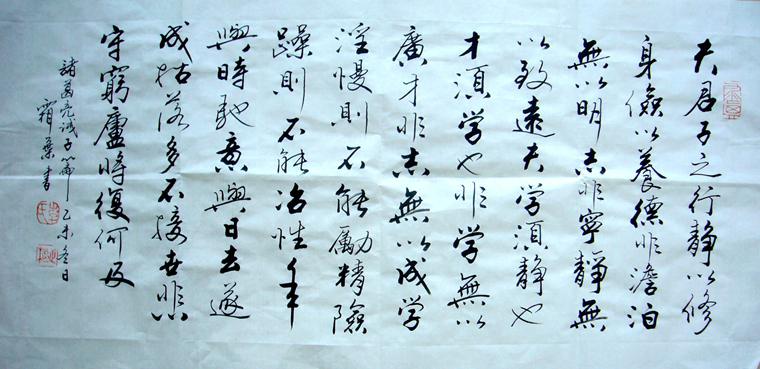 夫君子之行静以修
身儉以養德非澹泊
無以明志非寧静無
以致遠夫学須静也
才須学也非学無以
廣才非志無以成学
淫慢則不能勵精險
躁則不能冶性年
與時馳意與日去遂
成枯落多不接世悲
守窮廬將復何及
諸葛亮诫子篇乙未冬日
霜葉書